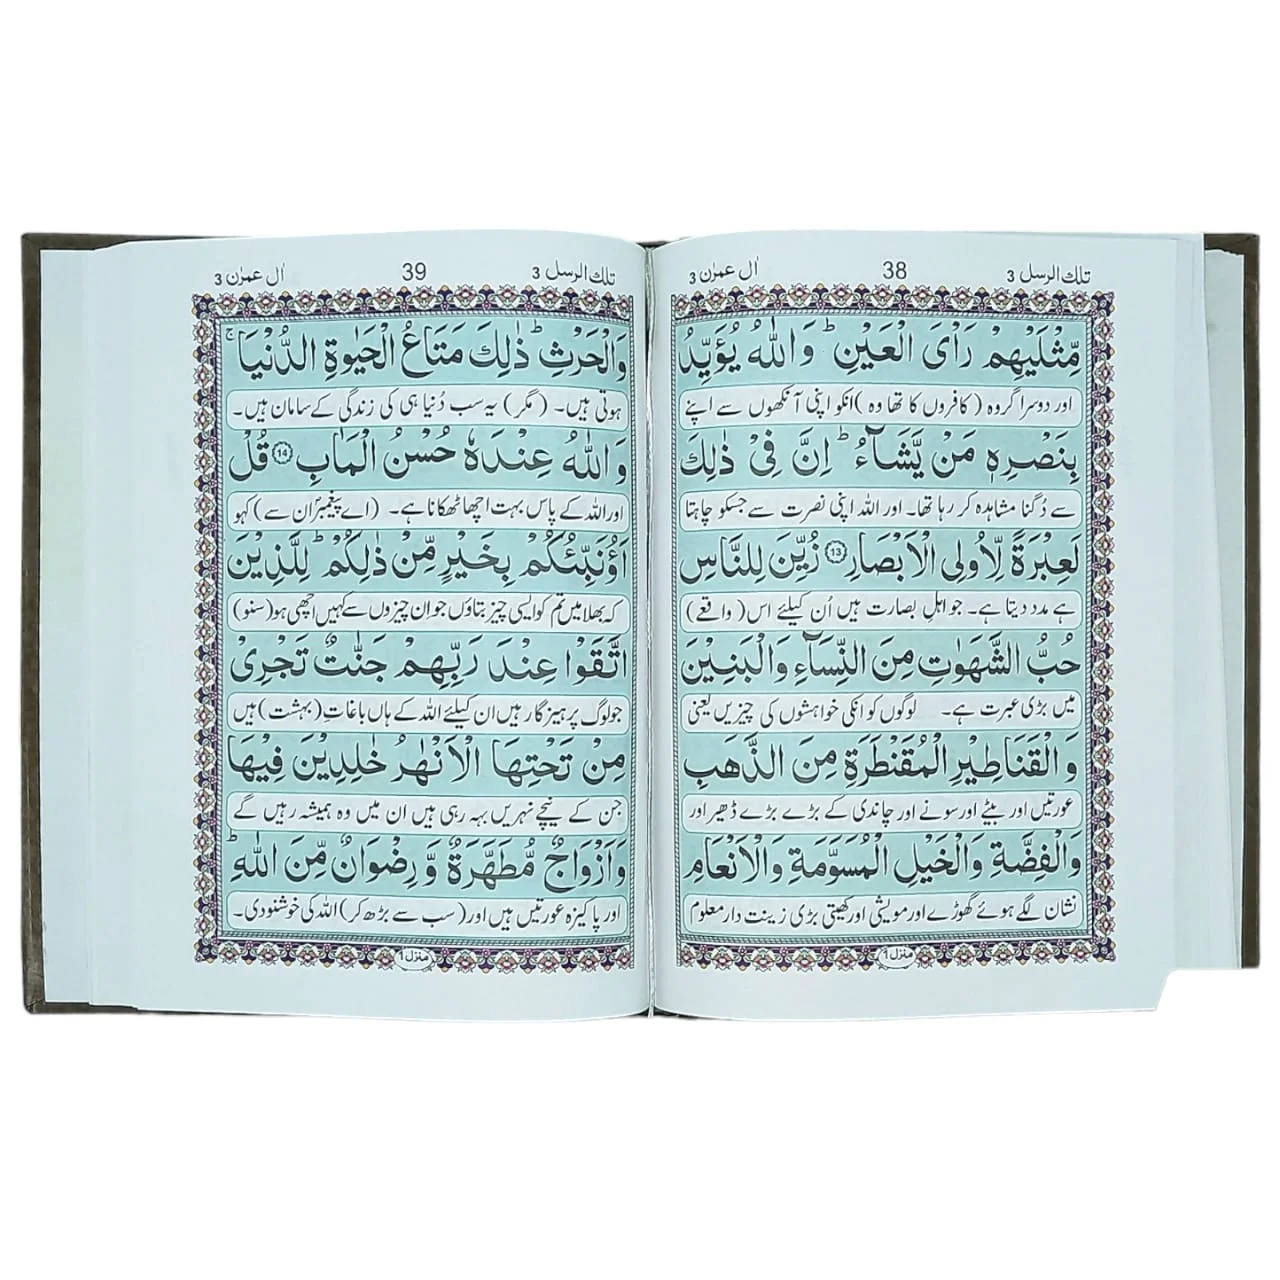 تلك الرسل 3
38
اٰل عمرٰن 3
مِّثْلَيْهِمْ رَاْىَ الْعَيْنِ ؕ وَ اللّٰهُ يُؤَيِّدُ
اور دوسرا گروہ (کافروں کا تھا وہ) انکو اپنی آنکھوں سے اپنے
بِنَصْرِهٖ مَنْ يَّشَآءُ ؕ اِنَّ فِىْ ذٰلِكَ
سے دُگنا مشاہدہ کر رہا تھا۔ اور اللہ اپنی نصرت سے جسکو چاہتا
لَعِبْرَةً لِّاُولِى الْاَبْصَارِ ۝13 زُيِّنَ لِلنَّاسِ
ہے مدد دیتا ہے۔ جو اہلِ بصارت ہیں اُن کیلئے اس (واقعے)
حُبُّ الشَّهَوٰتِ مِنَ النِّسَآءِ وَالْبَنِيْنَ
میں بڑی عبرت ہے۔ لوگوں کو انکی خواہشوں کی چیزیں یعنی
وَ الْقَنَاطِيْرِ الْمُقَنْطَرَةِ مِنَ الذَّهَبِ
عورتیں اور بیٹے اور سونے اور چاندی کے بڑے بڑے ڈھیر اور
وَالْفِضَّةِ وَالْخَيْلِ الْمُسَوَّمَةِ وَالْاَنْعَامِ
نشان لگے ہوئے گھوڑے اور مویشی اور کھیتی بڑی زینت دار معلوم
منزل 1
تلك الرسل 3
39
اٰل عمرٰن 3
وَالْحَرْثِ ؕ ذٰلِكَ مَتَاعُ الْحَيٰوةِ الدُّنْيَا ۚ
ہوتی ہیں۔ (مگر) یہ سب دُنیا ہی کی زندگی کے سامان ہیں۔
وَ اللّٰهُ عِنْدَهٗ حُسْنُ الْمَاٰبِ ۝14 قُلْ
اور اللہ کے پاس بہت اچھا ٹھکانا ہے۔ (اے پیغمبرؐ ان سے) کہو
اَؤُنَبِّئُكُمْ بِخَيْرٍ مِّنْ ذٰلِكُمْ ؕ لِلَّذِيْنَ
کہ بھلا میں تم کو ایسی چیز بتاؤں جو اِن چیزوں سے کہیں اچھی ہو (سنو)
اتَّقَوْا عِنْدَ رَبِّهِمْ جَنّٰتٌ تَجْرِىْ
جو لوگ پرہیزگار ہیں ان کیلئے اللہ کے ہاں باغات (بہشت) ہیں
مِنْ تَحْتِهَا الْاَنْهٰرُ خٰلِدِيْنَ فِيْهَا
جن کے نیچے نہریں بہہ رہی ہیں ان میں وہ ہمیشہ رہیں گے
وَ اَزْوَاجٌ مُّطَهَّرَةٌ وَّ رِضْوَانٌ مِّنَ اللّٰهِ ؕ
اور پاکیزہ عورتیں ہیں اور (سب سے بڑھ کر) اللہ کی خوشنودی۔
منزل 1